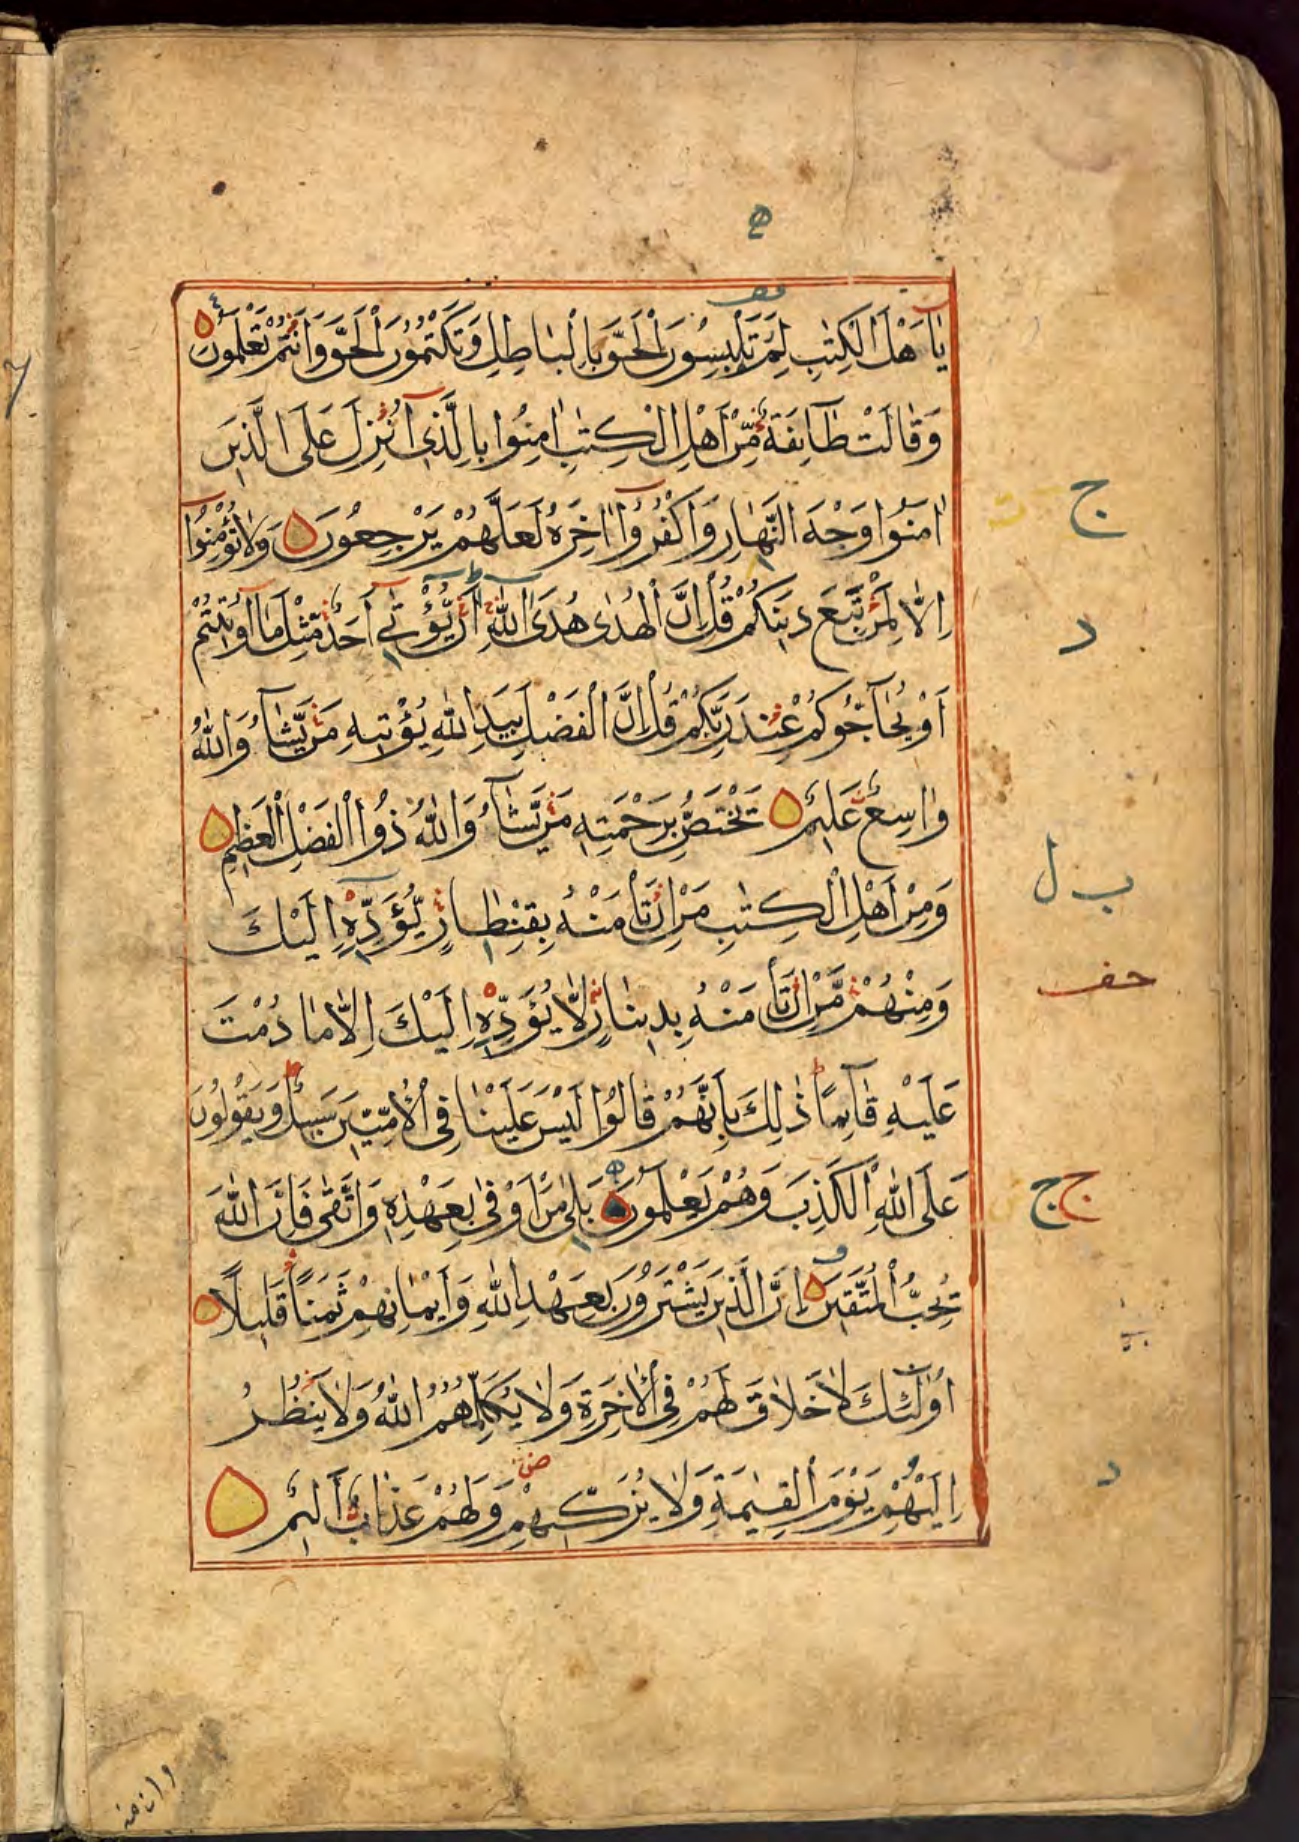 يٰٓاَهْلَ الْكِتٰبِ لِمَ تَلْبِسُونَ الْحَقَّ بِالْبَاطِلِ وَتَكْتُمُونَ الْحَقَّ وَاَنْتُمْ تَعْلَمُونَ
وَقَالَتْ طَآئِفَةٌ مِّنْ اَهْلِ الْكِتٰبِ اٰمِنُوا بِالَّذِىٓ اُنْزِلَ عَلَى الَّذِينَ
اٰمَنُوا وَجْهَ النَّهَارِ وَاكْفُرُوٓا اٰخِرَهُ لَعَلَّهُمْ يَرْجِعُونَ وَلَا تُؤْمِنُوٓا
اِلَّا لِمَنْ تَبِعَ دِينَكُمْ قُلْ اِنَّ الْهُدٰى هُدَى اللّٰهِ اَنْ يُّؤْتٰىٓ اَحَدٌ مِّثْلَ مَآ اُوتِيتُمْ
اَوْ يُحَآجُّوكُمْ عِنْدَ رَبِّكُمْ قُلْ اِنَّ الْفَضْلَ بِيَدِ اللّٰهِ يُؤْتِيهِ مَنْ يَّشَآءُ وَاللّٰهُ
وٰاسِعٌ عَلِيمٌ يَخْتَصُّ بِرَحْمَتِهِ مَنْ يَّشَآءُ وَاللّٰهُ ذُوا الْفَضْلِ الْعَظِيمِ
وَمِنْ اَهْلِ الْكِتٰبِ مَنْ اِنْ تَأْمَنْهُ بِقِنْطَارٍ يُّؤَدِّهِٓ اِلَيْكَ
وَمِنْهُمْ مَّنْ اِنْ تَأْمَنْهُ بِدِينَارٍ لَّا يُؤَدِّهِٓ اِلَيْكَ اِلَّا مَا دُمْتَ
عَلَيْهِ قَآئِمًا ذٰلِكَ بِاَنَّهُمْ قَالُوا لَيْسَ عَلَيْنَا فِى الْاُمِّيّٖنَ سَبِيلٌ وَيَقُولُونَ
عَلَى اللّٰهِ الْكَذِبَ وَهُمْ يَعْلَمُونَ بَلٰى مَنْ اَوْفٰى بِعَهْدِهِ وَاتَّقٰى فَاِنَّ اللّٰهَ
يُحِبُّ الْمُتَّقِينَ اِنَّ الَّذِينَ يَشْتَرُونَ بِعَهْدِ اللّٰهِ وَاَيْمَانِهِمْ ثَمَنًا قَلِيلًا
اُولٰٓئِكَ لَا خَلَاقَ لَهُمْ فِى الْاٰخِرَةِ وَلَا يُكَلِّمُهُمُ اللّٰهُ وَلَا يَنْظُرُ
اِلَيْهِمْ يَوْمَ الْقِيٰمَةِ وَلَا يُزَكِّيهِمْ وَلَهُمْ عَذَابٌ اَلِيمٌ
ج
د
ب ل
ج ج
د